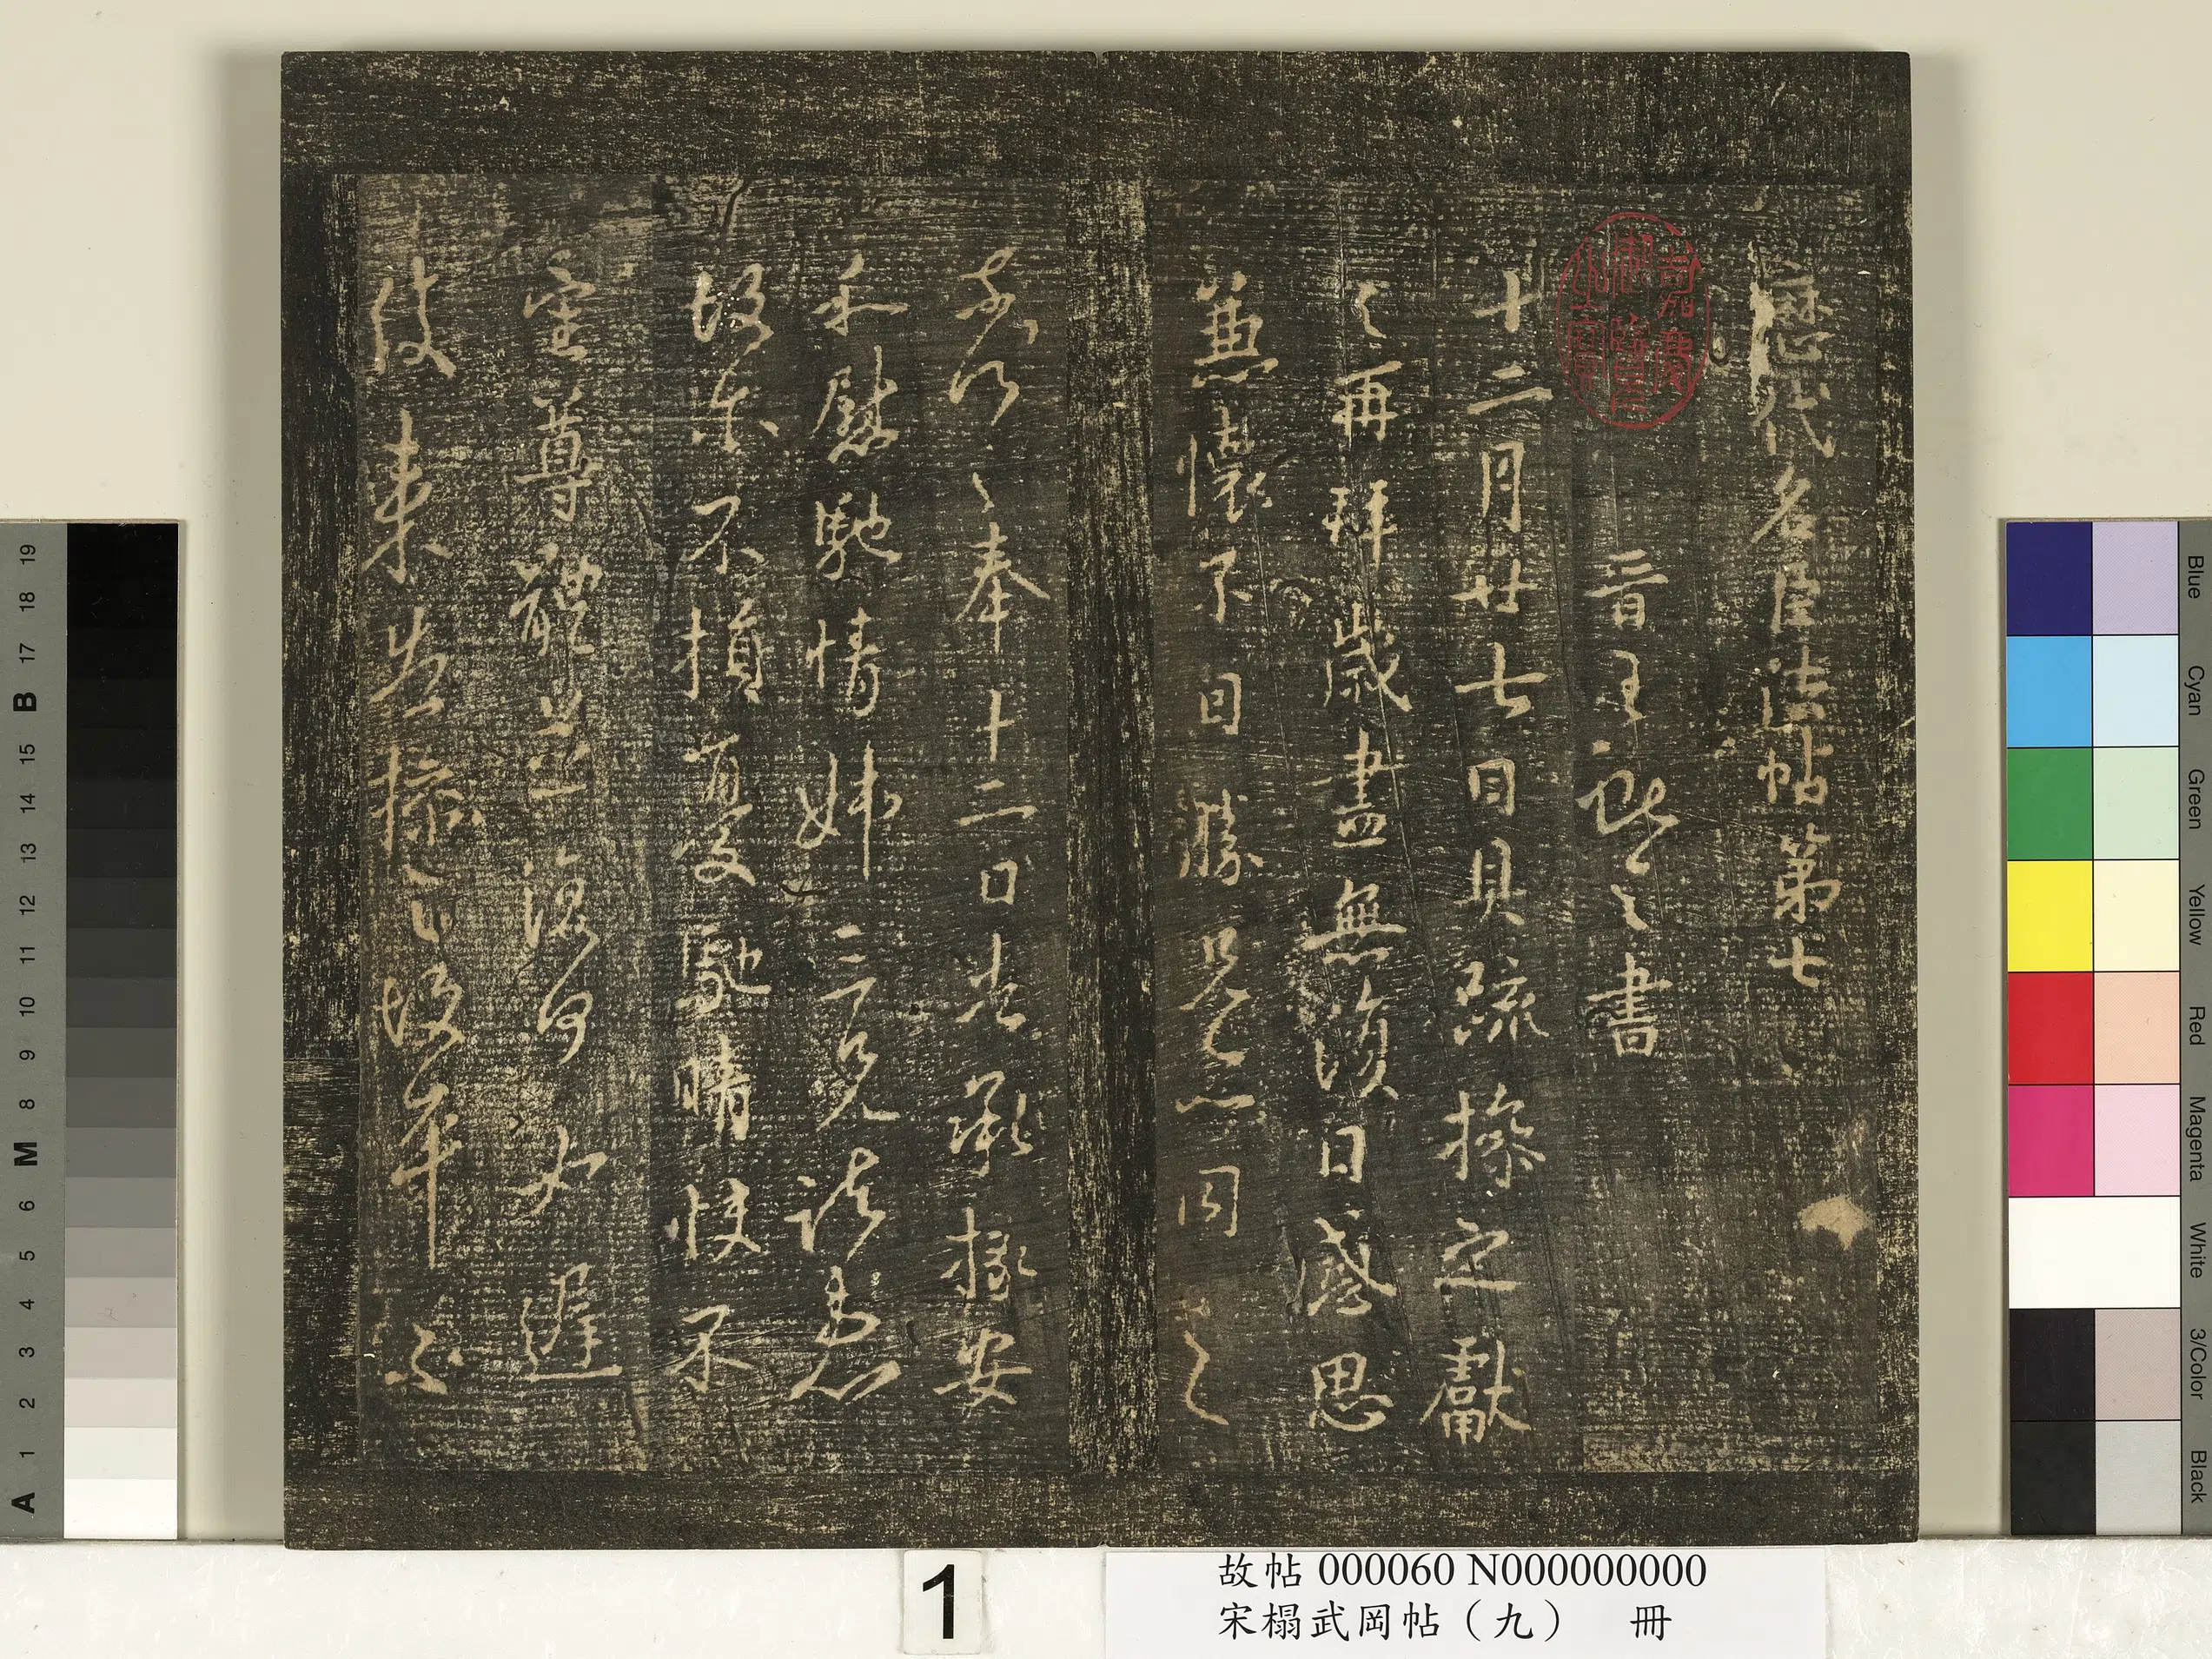 歷代名臣法帖第七
晉王獻之書
嘉慶御覽之寶
十二月廿七日具疏操之獻
之再拜歲盡無復日感思
兼懷不自勝兄亦同之
奉十二日告承掾安
和慰馳情姊云兄諸患
故不損憂馳情不
審尊體並復何如遲
告
1
故帖 000060 N000000000
宋榻武岡帖（九） 冊
19
18
17
B
15
14
13
12
11
10
9
8
M
6
5
4
3
2
1
A
Blue
Cyan
Green
Yellow
Red
Magenta
White
3/Color
Black